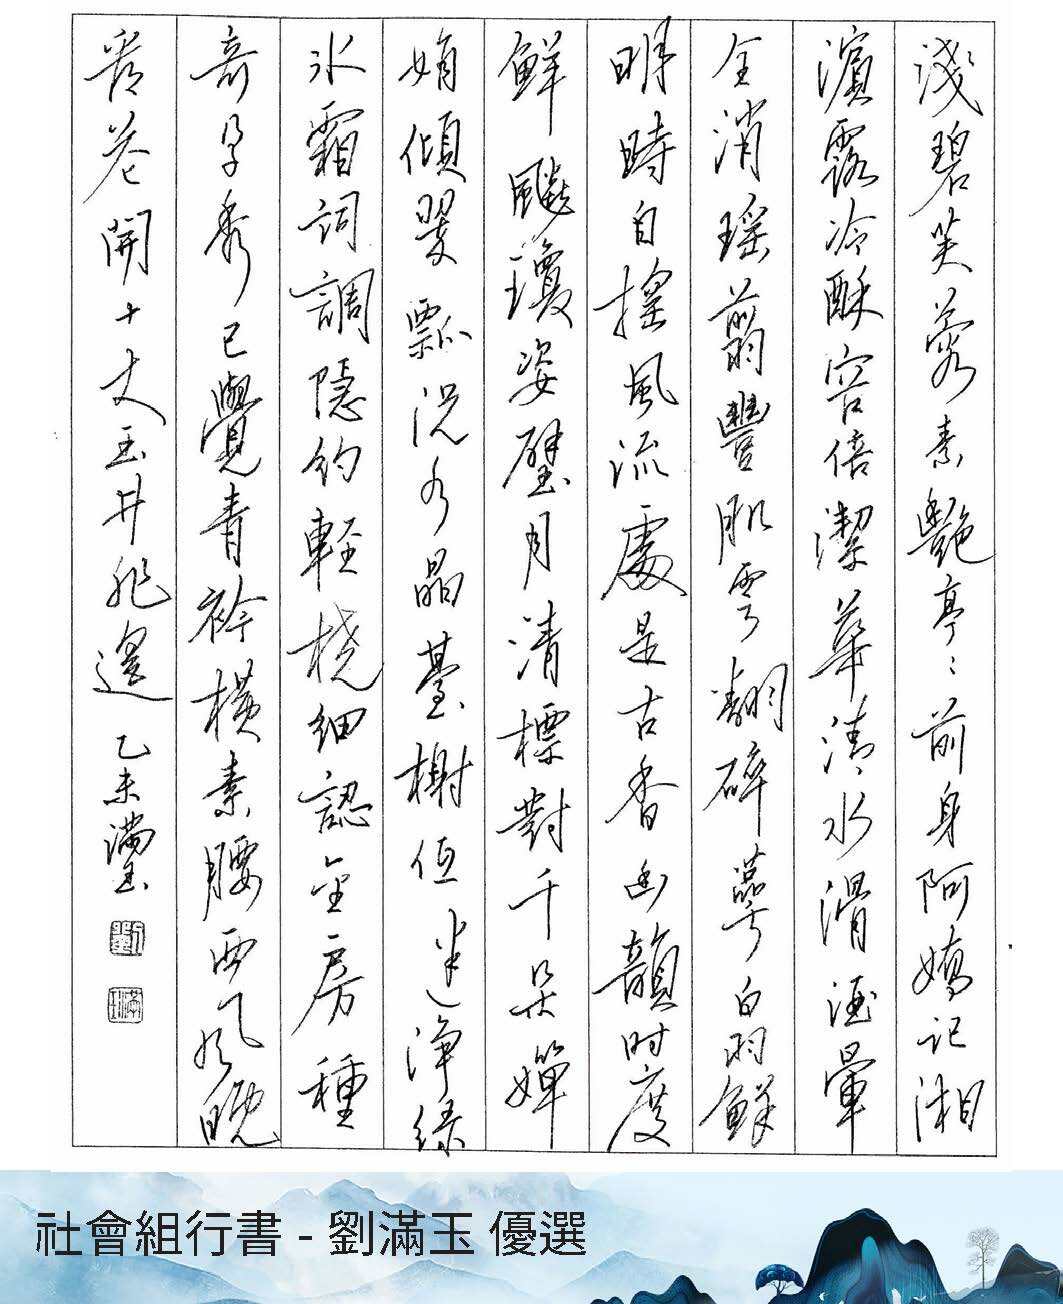 淺碧芙蓉素艷亭〻前身阿嬌記湘
濱露冷酥容倍潔華清水滑酒暈
全消瑤翦豐肌雲翻碎萼白羽鮮
明時自搖風流處是古香幽韻時度
鮮飈瓊姿璧月清標對千朵嬋
娟傾翠瓢況水晶臺榭低迷淨綠
冰霜詞調隱約輕橈細認金房種
奇孕秀已覺青衿橫素腰西風晚
看卷開十丈玉井非遙 乙未滿玉
劉
社會組行書 - 劉滿玉 優選